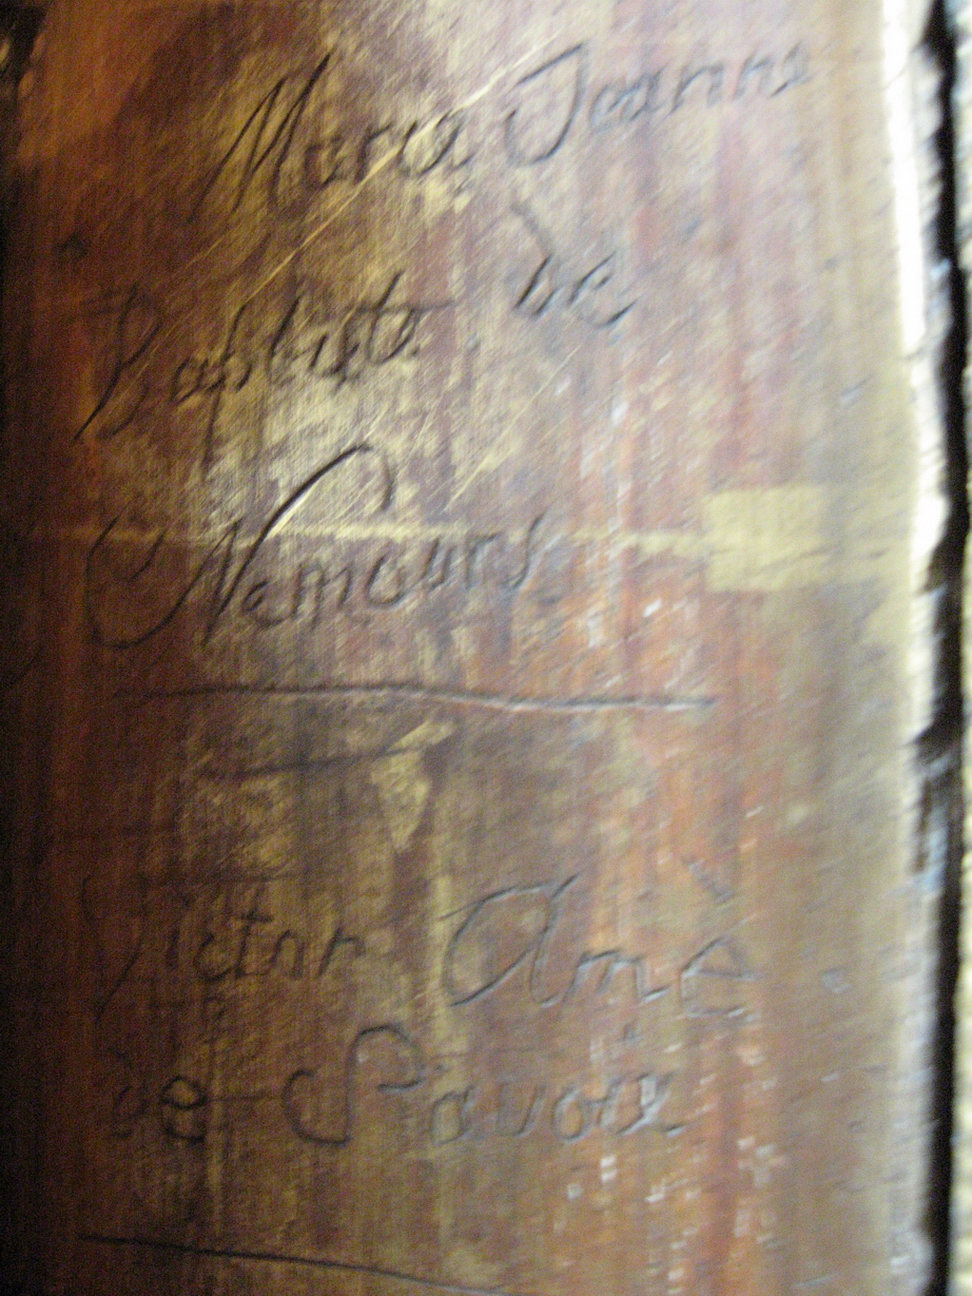 Maria Joanna
Baptista de
Nemours
Victor Amè
de Savoia